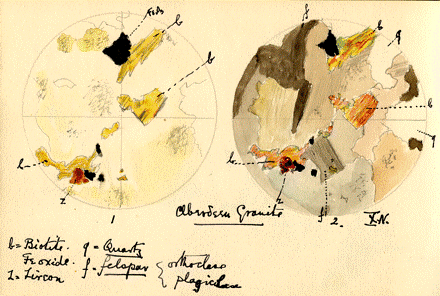 Fe Ox
b
b
b
z
1
f
b
q
b
q
b
z
f
2. X.N.
Aberdeen Granite
b = Biotite. q = Quartz
Fe oxide. f = felspar { orthoclase
Z = Zircon plagioclase